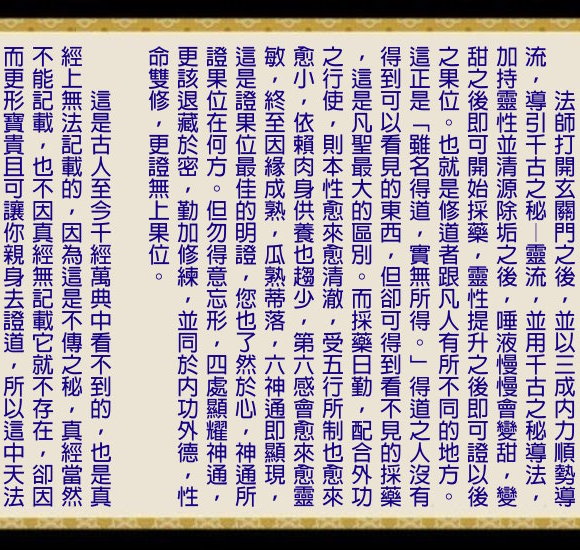 法師打開玄關門之後，並以三成內力順勢導
流，導引千古之秘—靈流，並用千古之秘導法，
加持靈性並清源除垢之後，唾液慢慢會變甜，變
甜之後即可開始採藥，靈性提升之後即可證以後
之果位。也就是修道者跟凡人有所不同的地方。
這正是「雖名得道，實無所得。」得道之人沒有
得到可以看見的東西，但卻可得到看不見的採藥
，這是凡聖最大的區別。而採藥日勤，配合外功
之行使，則本性愈來愈清澈，受五行所制也愈來
愈小，依賴肉身供養也趨少，第六感會愈來愈靈
敏，終至因緣成熟，瓜熟蒂落，六神通即顯現，
這是證果位最佳的明證，您也了然於心，神通所
證果位在何方。但勿得意忘形，四處顯耀神通，
更該退藏於密，勤加修練，並同於內功外德，性
命雙修，更證無上果位。
這是古人至今千經萬典中看不到的，也是真
經上無法記載的，因為這是不傳之秘，真經當然
不能記載，也不因真經無記載它就不存在，卻因
而更形寶貴且可讓你親身去證道，所以這中天法